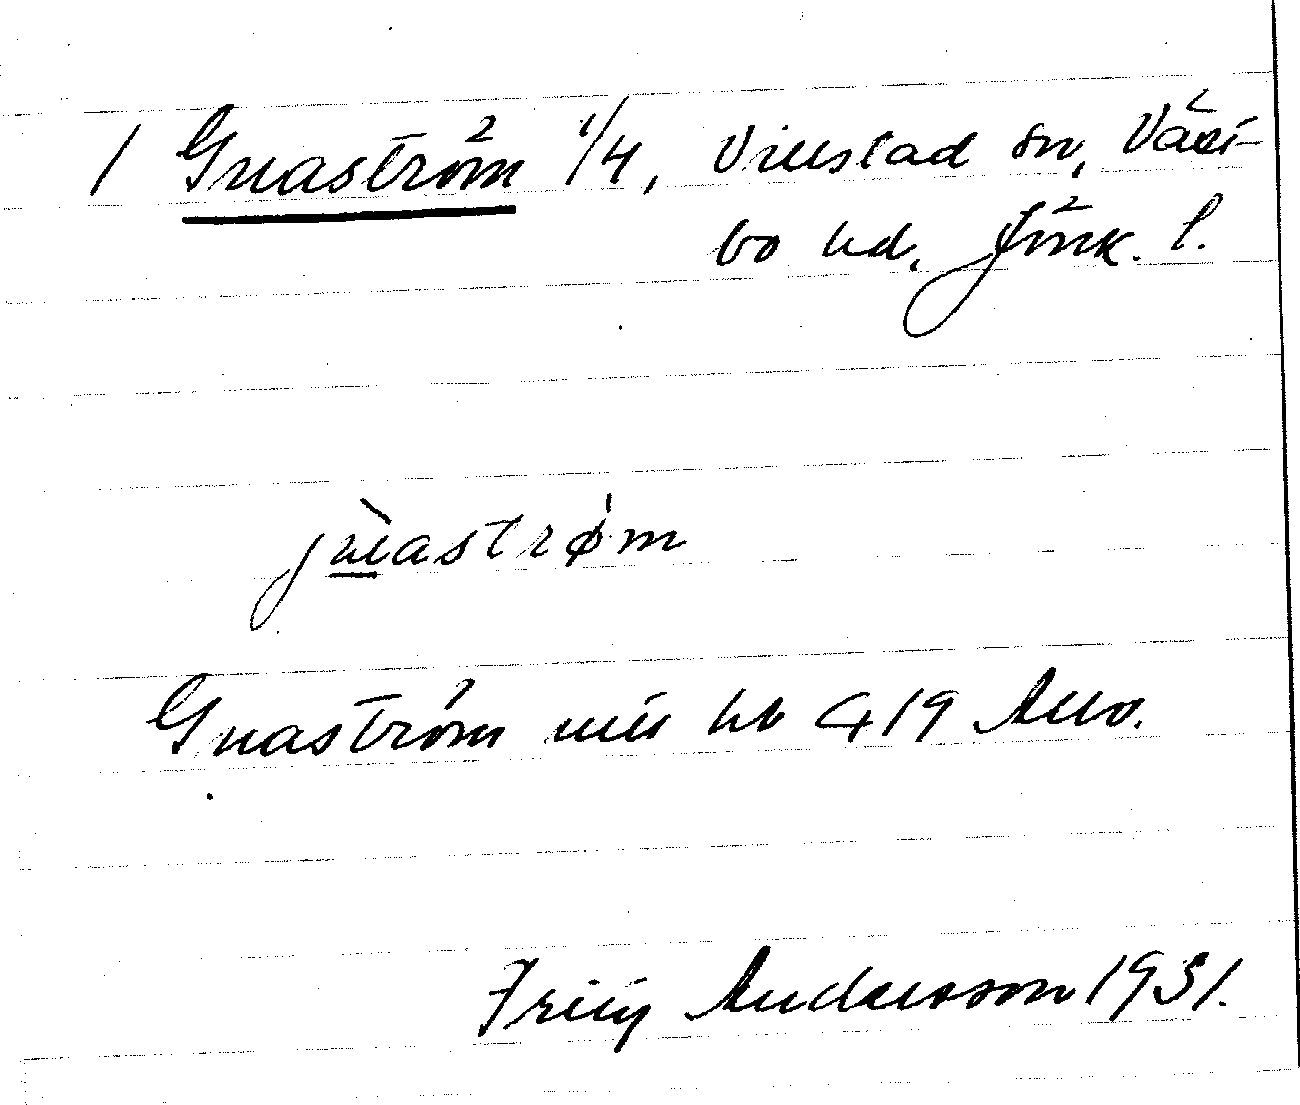 1 Gnaström 1/4, Villstad sn, Väst-
bo hd, Jönk. l.
jnıastrøm
Gnaström nill hb 419 Allo.
Frity Andersson 1931.